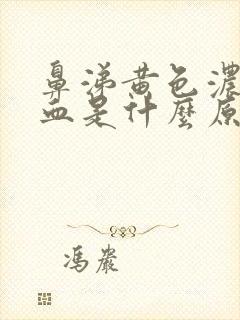 鼻涕黄色濃
血是什麼原
馮巖